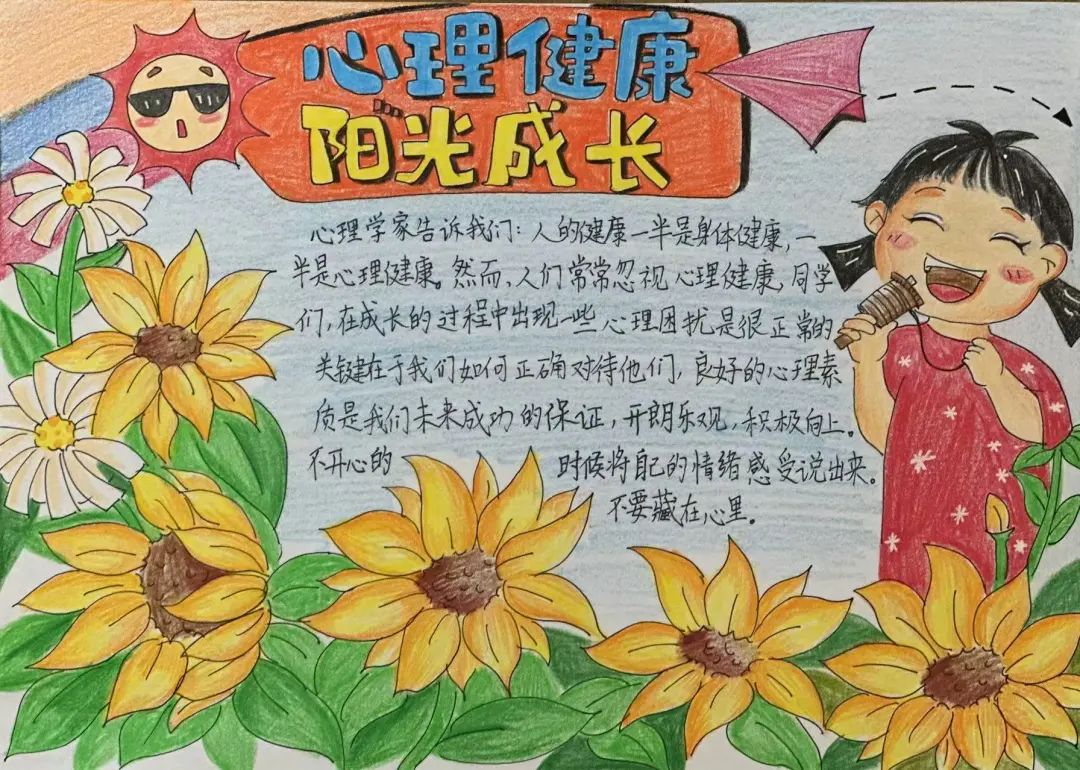 心理健康
阳光成长
心理学家告诉我们：人的健康一半是身体健康，一
半是心理健康。然而、人们常常忽视心理健康，同学
们，在成长的过程中出现一些心理困扰是很正常的
关键在于我们如何正确对待他们，良好的心理素
质是我们未来成功的保证，开朗乐观，积极向上。
不开心的 时候将自己的情绪感受说出来。
不要藏在心里。